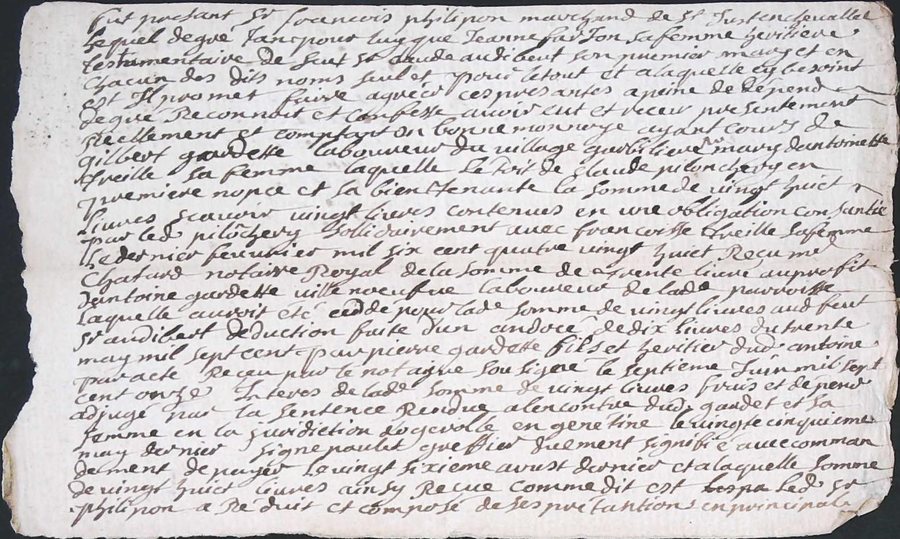 Fut presant Sr francois philipon marchand de St Just en chevallet
Lequel de gré tans pour luy que Jeanne sa femme heritiere
testamentaire de feut Sr Claude audibert son premier mary et en
chacun des dits noms seul et pour le tout et a laquelle cy besoint
est Il promet faire agreer ces presantes a peine de depend
de gré Reconnoit et confesse avoir eut et receu presentement
Reellement et comptant en bonne monnoye ayant cours de
gilbert gardette laboureur du village mary d'antoinette
treille sa femme laquelle Le toit de claude pilonchery en
premiere nopce et sa bientenante la somme de vingt huict
livres scavoir vingt livres contenues en une obligation consantie
par led pilochery sollidairement avec francoise treille sa femme
Le dernier feuvrier mil six cent quatre vingt huict Receu me
Chatard notaire Royal de la somme de trente livre au profit
dantoine gardette villeneufve laboureur de lade parroisse
Laquelle auroit eté ceddé pour lade somme de vingt livres aud feut
Sr audibert deduction faite d'un andocé de dix livres du trente
may mil sept cent par pierre gardette fils et heritier dud antoine
par acte Receu par le notaire soussigne le septieme Juin mil sept
cent onze Interes de lade somme de vingt livres frais et depend
adjugé par la sentence Rendue a lencontre dud gardet et sa
femme en la juridiction le vingte cinquieme
may dernier signe pault greffier duement signifié avec comman
dement de payer Le vingt sixieme aoust dernier et a laquelle somme
de vingt huict livres ainsy Receue comme dit est led sr
philipon a Reduit et composé de ses prétantions en principal